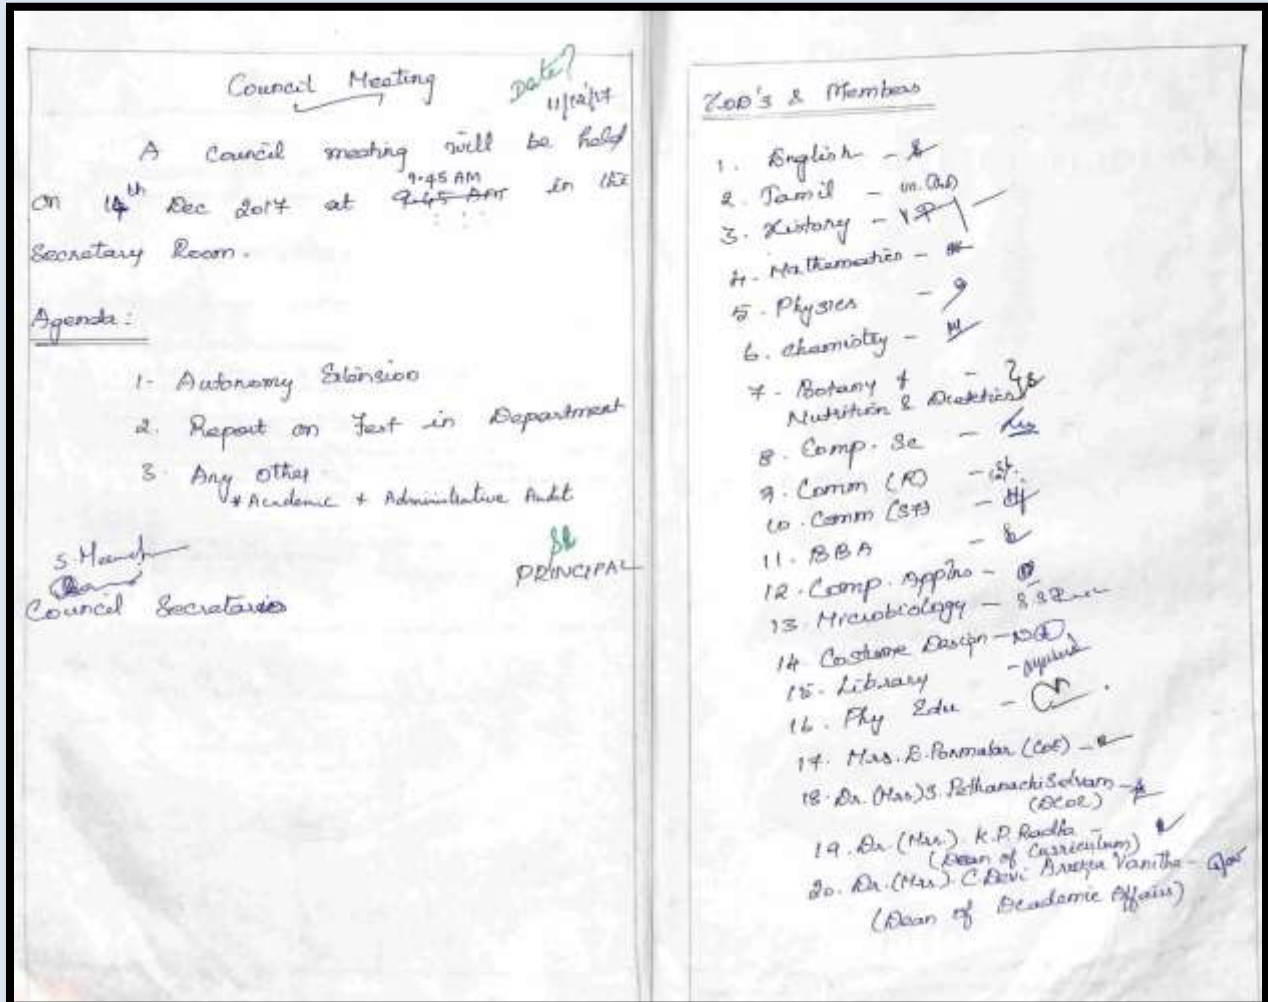 Council Meeting
Date?
11/12/17
A Council meeting will be held
9.45 AM
on 14th Dec 2017 at 9.45 AM in the
Secretary Room.
Agenda:
1. Autonomy Extension
2. Report on Fest in Department
3. Any other
* Academic & Administrative Audit
PRINCIPAL
Council Secretaries
HOD's & Members
1. English -
2. Tamil -
3. History -
4. Mathematics -
5. Physics -
6. Chemistry -
7. Botany & -
Nutrition & Dietetics
8. Comp. Sc -
9. Comm (R) -
10. Comm (SF) -
11. BBA -
12. Comp. Applns -
13. Microbiology -
14. Costume Design -
15. Library -
16. Phy Edu -
17. Mrs. B. Ponmalar (CoE) -
18. Dr. (Mrs) S. Pethanachi Selvam -
(DCOE)
19. Dr. (Mrs.) K.P. Radha -
(Dean of Curriculum)
20. Dr. (Mrs). C Devi Vanitha -
(Dean of Academic Affairs)